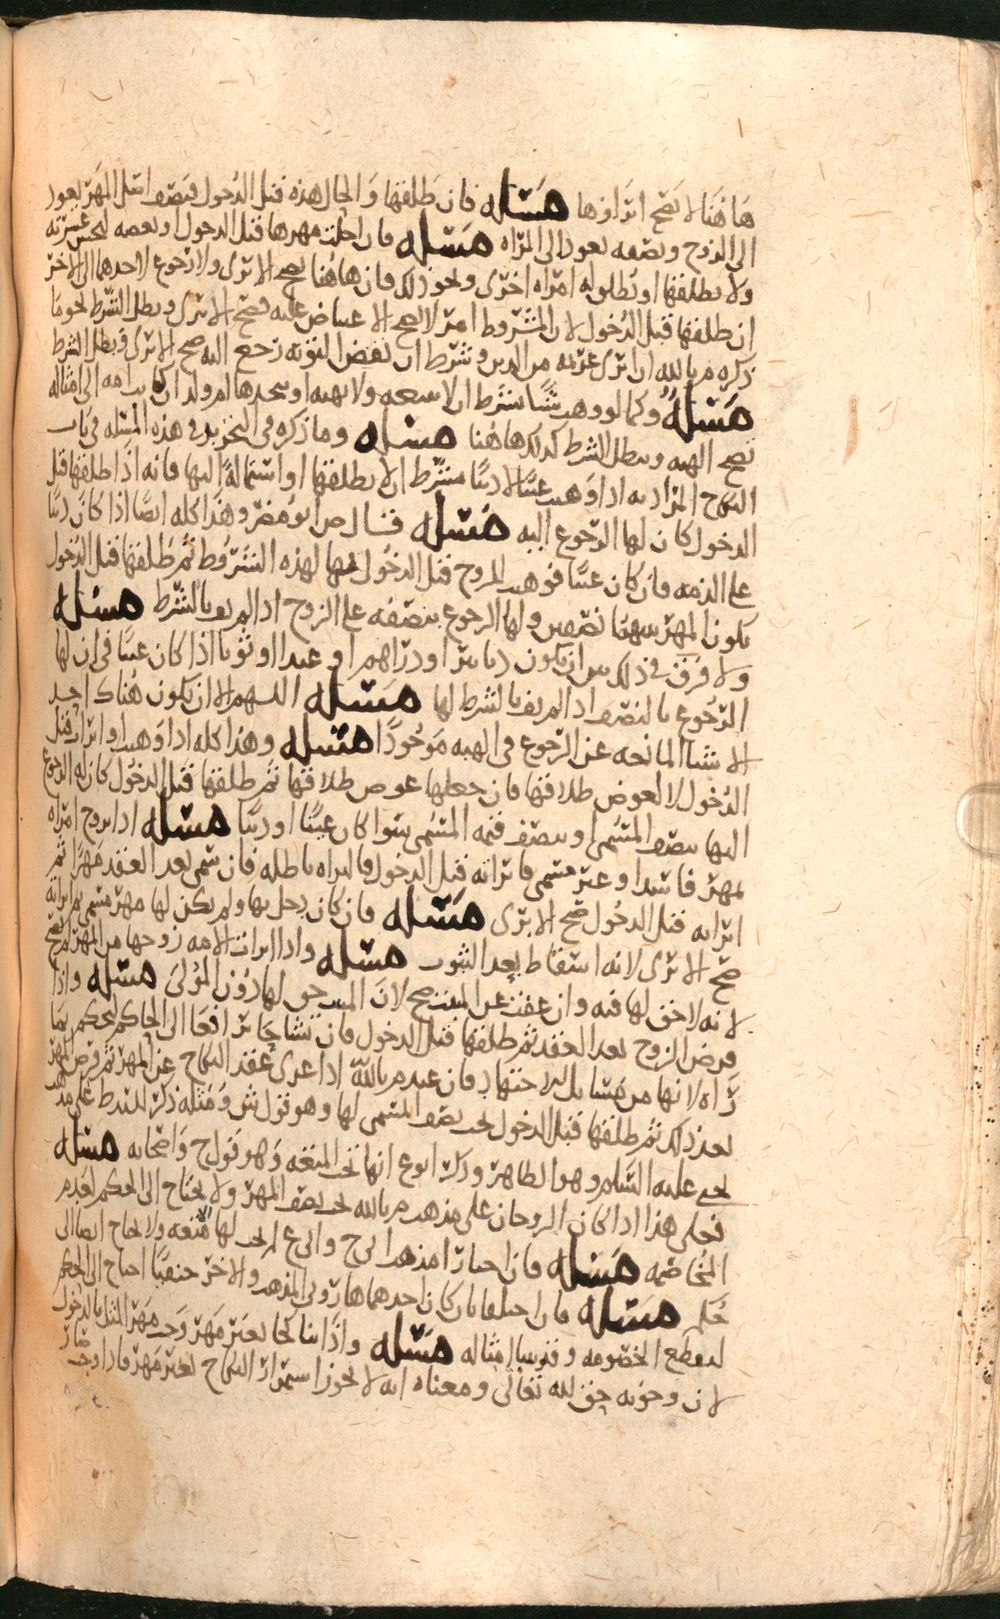 هاهنا لا يصح ابراؤها مسله فان طلقها والحال هذه قبل الدخول فنصف اصل المهر يعود
الى الزوج ونصفه يعود الى المراه مسله فان احلت مهرها قبل الدخول او بعضه ليحسن عشرته
ولا يطلقها او يطلق له امراه اخرى ونحو ذلك فان هاهنا يصح الابرى ولا رجوع لاحدهما الى الاخر
ان طلقها قبل الدخول لان المشروط امر لا يصح الاعتياض عليه فصح الابرى وبطل الشرط نحو ما
ذكره م بالله ان ابرى غريمه من الدين وشرط ان نقض التوبه رجع اليه صح الابرى وبطل الشرط
مسله وكما لو وهب شيا بشرط ان لا يبيعه ولا يهبه او يتخذها ام ولد ان كانت امه الى امثاله
تصح الهبه ويبطل الشرط كذلك هاهنا مسله وما ذكره في التحرير في هذه المسله في باب
النكاح المراد به اذا وهبت عينا لا دينا بشرط ان لا يطلقها او استماله اليها فانه اذا طلقها قبل
الدخول كان لها الرجوع اليه مسله قال ص ابو مضر وهذا كله ايضا اذا كان دينا
على الذمه فان كان عينا فوهبت للزوج قبل الدخول بها لهذه الشروط ثم طلقها قبل الدخول
يكون المهر بينهما نصفين ولها الرجوع بنصفه على الزوج اذا لم يف بالشرط مسله
ولا فرق في ذلك بين ان يكون دنانير او دراهم او عبدا او ثوبا اذا كان عينا في ان لها
الرجوع بالنصف اذا لم يف بالشرط لها مسله اللهم الا ان يكون هناك احد
الاشيا المانعه عن الرجوع في الهبه موجودا مسله وهذا كله اذا وهبت او ابرات قبل
الدخول لا لعوض طلاقها فان جعلها عوض طلاقها ثم طلقها قبل الدخول كان له الرجوع
اليها بنصف المسمى او بنصف قيمه المسمى سوا كان عينا او دينا مسله اذا تزوج امراه
لمهر فاسد او غير مسمى فابراته قبل الدخول فالبراه باطله فان سمى بعد العقد مهرا ثم
ابراته قبل الدخول صح الابرى مسله فان كان دخل بها ولم يكن لها مهر مسمى ثم ابراته
صح الابرى لانه اسقاط بعد الثبوت مسله واذا ابرات الامه زوجها من المهر لم يصح
لانه لا حق لها فيه وان عفت عن المبيت صح لان المبيت حق لها دون المولى مسله واذا
فرض الزوج بعد العقد ثم طلقها قبل الدخول فان تشاجرا ترافعا الى الحاكم ليحكم بما
رآه لانها من مسايل الاجتهاد فان عند م بالله اذا عري عقد النكاح عن المهر ثم فرض المهر
بعد ذلك ثم طلقها قبل الدخول يجب نصف المسمى لها وهو قول ش ومثله ذكر ط على مذهب
يحيى عليه السلم وهو الظاهر وذكر ابو ع انها تجب المتعه وهو قول ح واصحابه مسله
فعلى هذا اذا كان الزوجان على مذهب م بالله يجب نصف المهر ولا يحتاج الى الحكم لعدم
المخاصمه مسله فان اختارا مذهب ابي ح وابي ع لم يجب لها الا متعه ولا يحتاج ايضا الى
حكم مسله فان اختلفا بان كان احدهما هارونى المذهب والاخر حنفيا احتاج الى الحكم
ليقطع الخصومه وقد بينا امثاله مسله واذا تناكحا بغير مهر وجب مهر المثل بالدخول
لان وجوبه حق لله تعالى ومعناه انه لا يجوز استمرار النكاح بغير مهر فاذا وجب صار